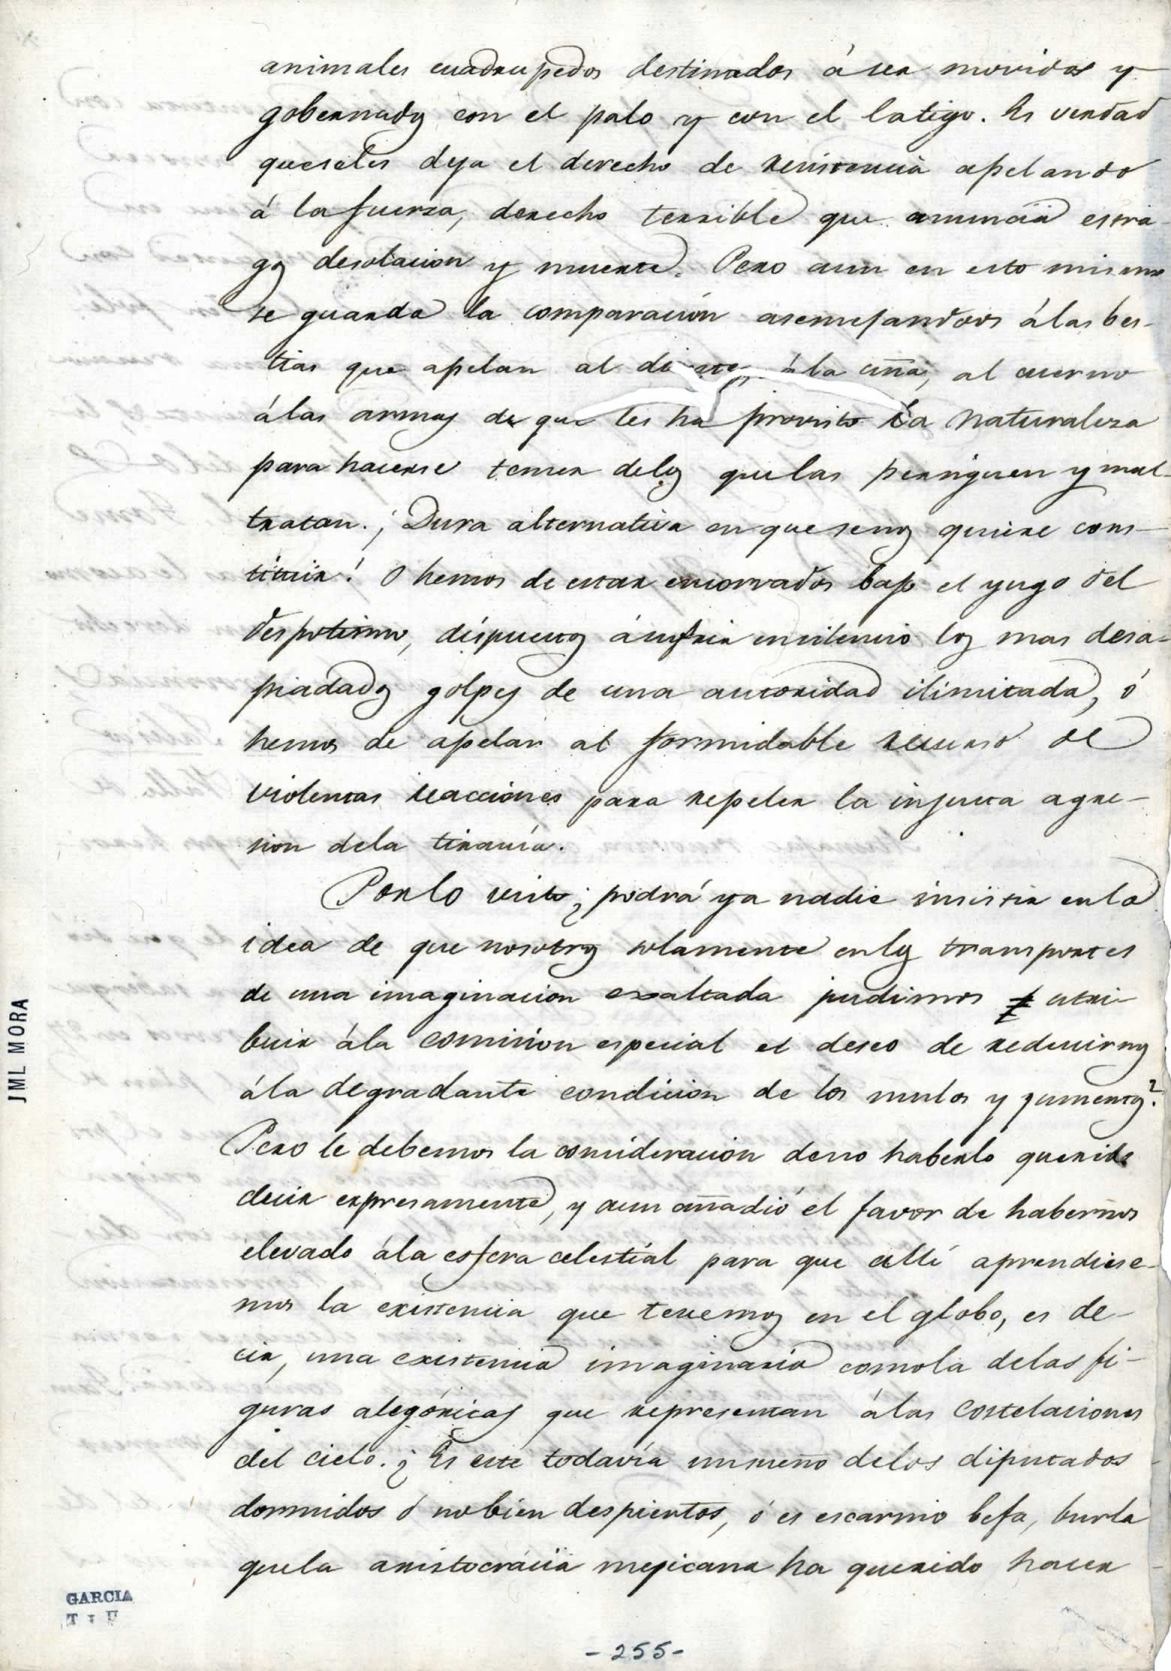 animales cuadrupedos destinados á ser movidos y
gobernados con el palo y con el latigo. Es verdad
queseles deja el derecho de resistencia apelando
á la fuerza, derecho terrible que anuncia estra-
gos desolacion y muerte. Pero aun en esto mismo
se guarda la comparación asemejandonos álas bes-
tias que apelan al diente, ála uña, al cuerno
álas armas de que les ha provisto la naturaleza
para hacerse temer delos quelas persiguen y mal-
tratan. ¡Dura alternativa en que senos quiere cons-
tituir! O hemos de estar encorvados bajo el yugo del
despotismo, dispuestos ásufrir ensilencio los mas desa-
piadados golpes de una autoridad ilimitada, ó
hemos de apelar al formidable recurso de
violentas reacciones para repeler la injusta agre-
sion dela tiranía.
Porlo visto ¿podrá ya nadie insistir enla
idea de que nosotros solamente enlos transportes
de una imaginacion exaltada pudimos atri-
buir ála comision especial el deseo de reducirnos
ála degradante condicion de los mulos y jumentos?
Pero le debemos la consideracion deno haberlo querido
decir expresamente, y aun añadió el favor de habernos
elevado ála esfera celestial para que allí aprendiese-
mos la existencia que tenemos en el globo, es de-
cir, una existencia imaginaria comola delas fi-
guras alegóricas que representan álas costelaciones
del cielo. ¿Es este todavía unsueño delos diputados
dormidos ó nobien despiertos, ó es escarnio befa, burla
quela aristocracia mejicana ha querido hacer
JML MORA
GARCIA
- 255 -